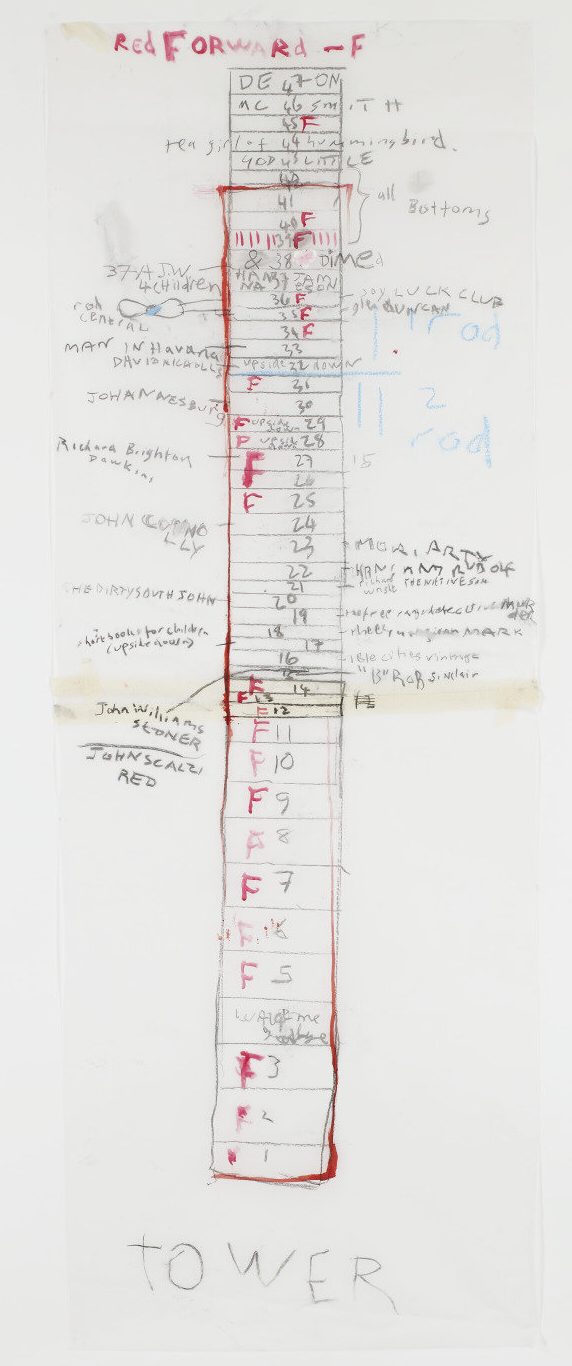 Red FORWARD - F
DE 47 ON
MC 46 SMITH
45 F
tea girl of 44 hummingbird.
GOD 43 LITTLE
42
41
all Bottoms
40 F
39 F
& 38 Dimed
37 A.J.W.
4 children
36 F
joy LUCK CLUB
35 F
glen DUNCAN
rod CENTRAL
34 F
1 rod
MAN IN Havana
33
DAVID NICHOLLS
upside 32 down
F 31
2 rod
JOHANNESBURG
30
F upside down 29
F upside down 28
Richard Brighton
Dawkins
F 27
15
26
F 25
JOHN CONNOLLY
24
23
MORIARTY
22
HANS AMY RUDOLF
21
THE DIRTY SOUTH JOHN
20
19
18
MARK
short books for children
(upside down)
17
16
"B" ROB Sinclair
15
F 14
F 13
F 12
John Williams
STONER
JOHN SCALZI
RED
F 11
F 10
F 9
F 8
F 7
F 6
F 5
F 3
2
1
TOWER